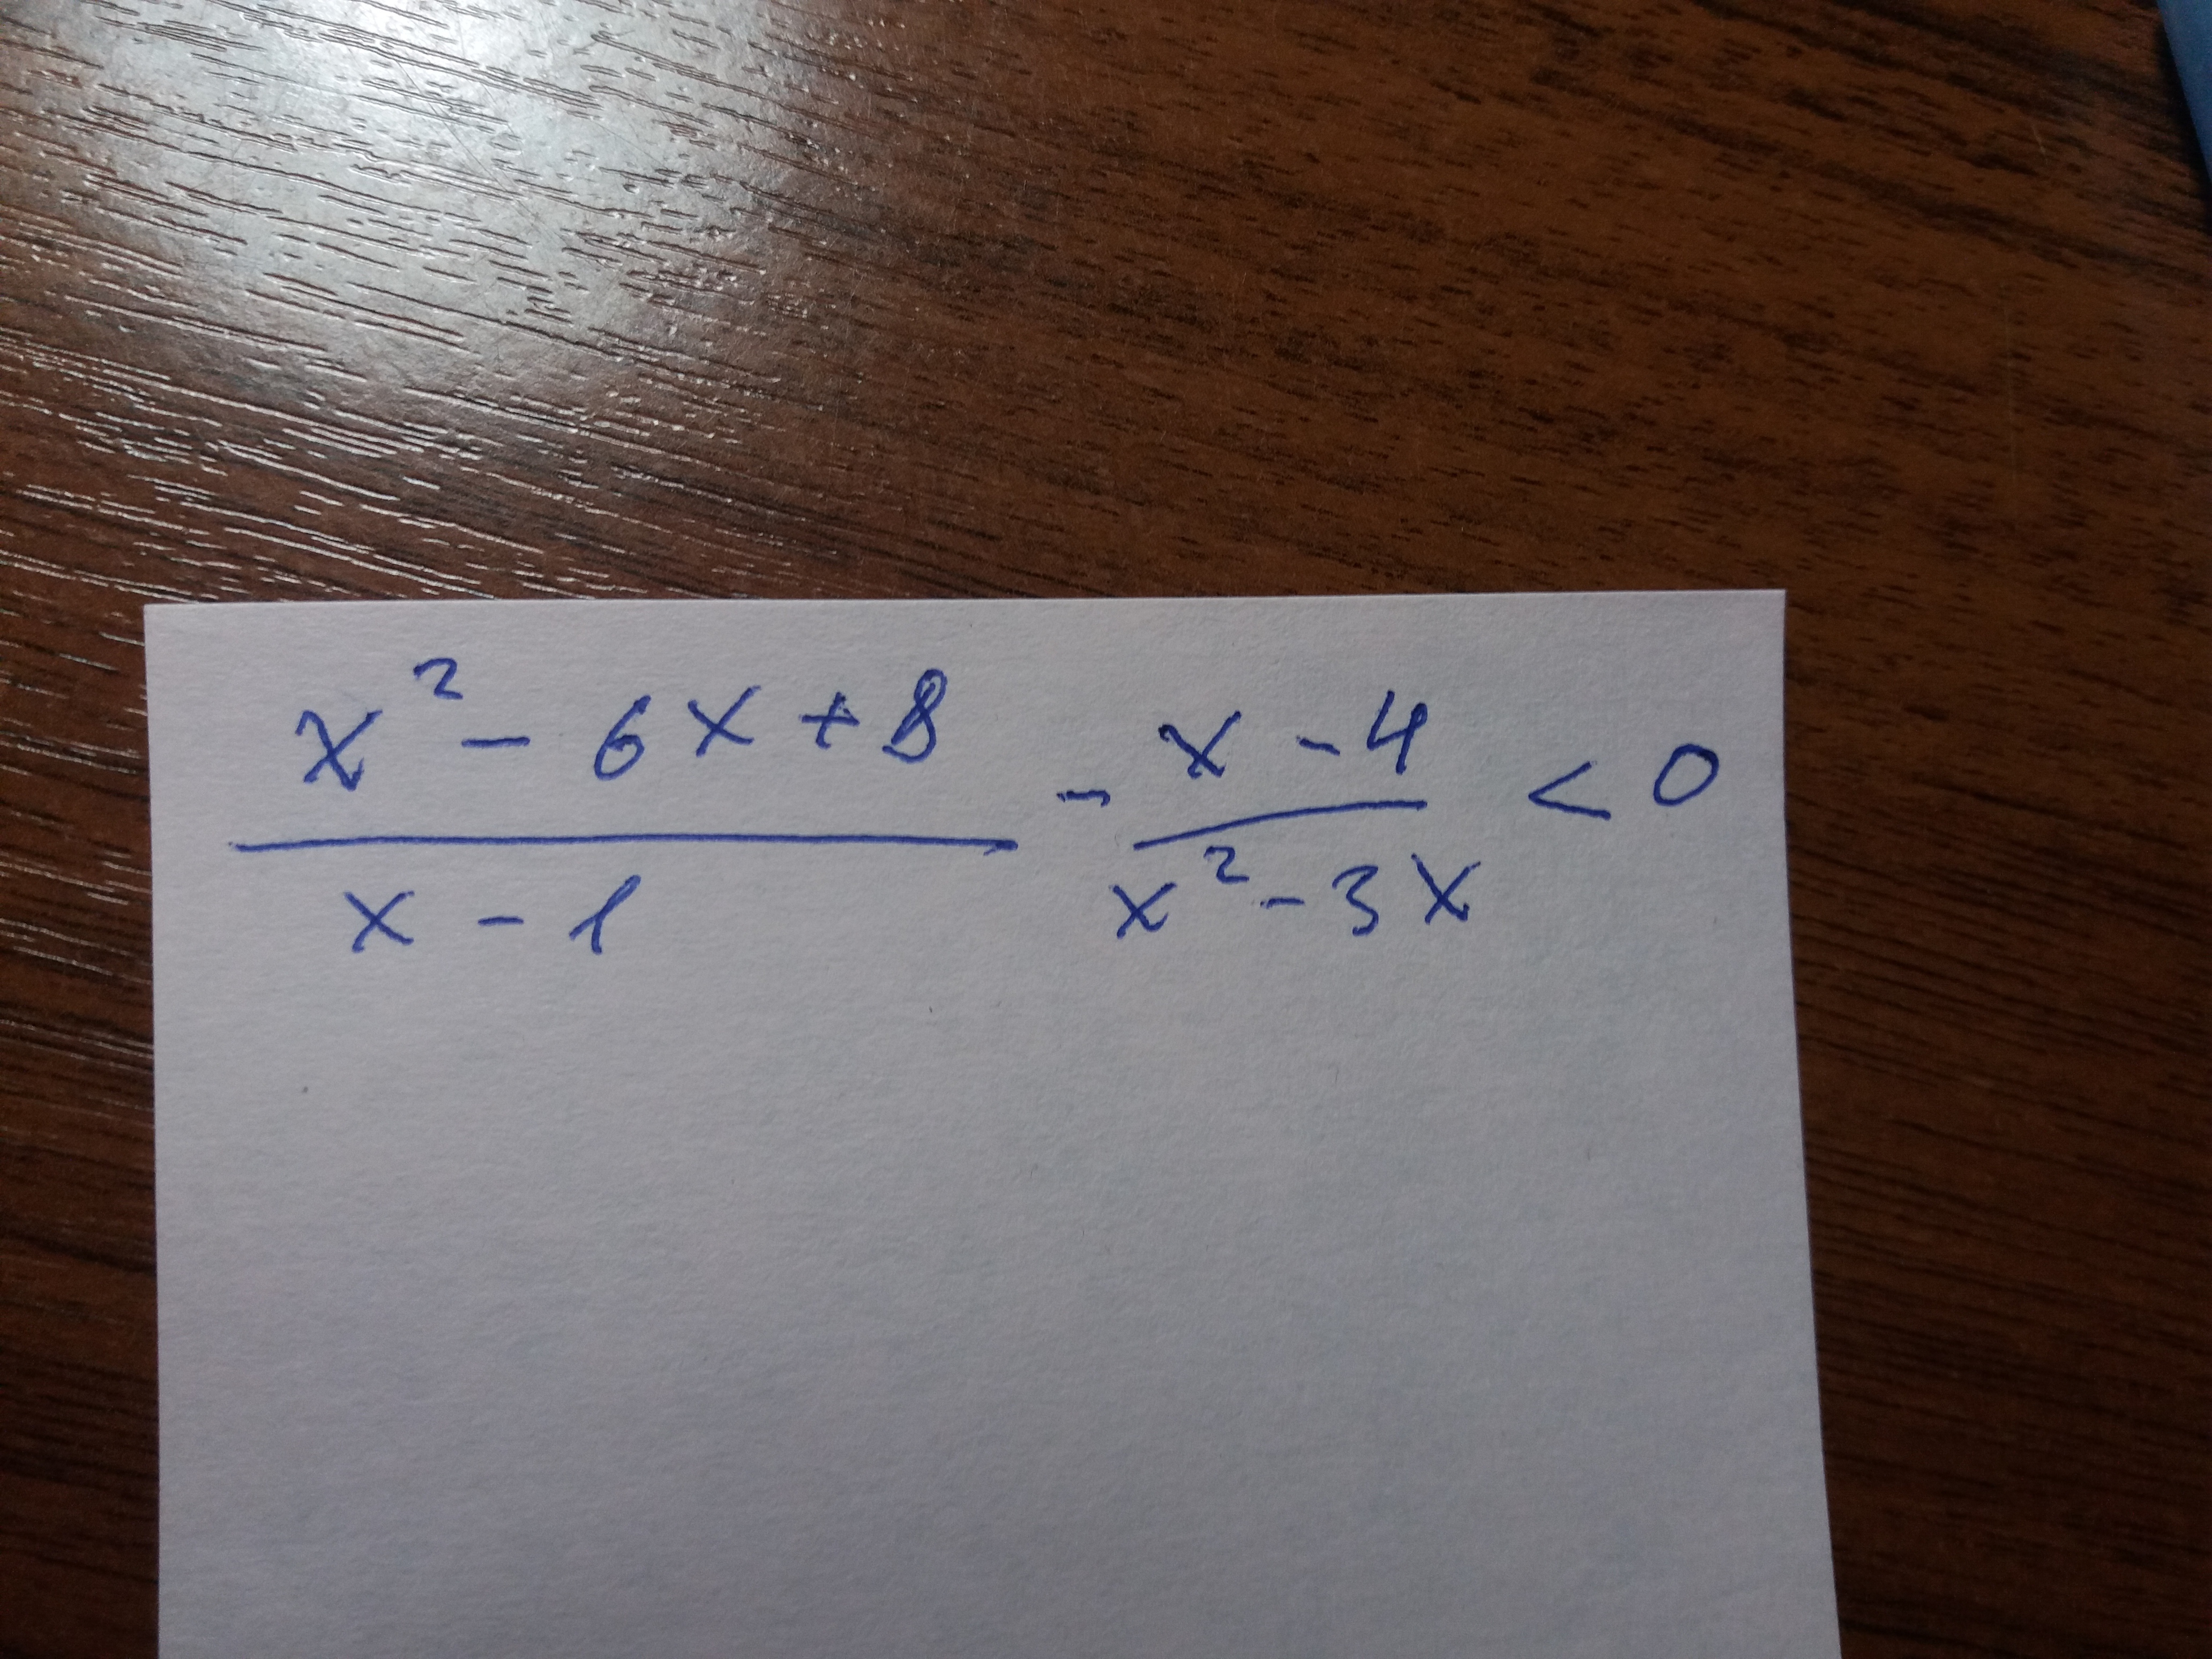 x² - 6x + 8 / x - 1 - x - 4 / x² - 3x < 0